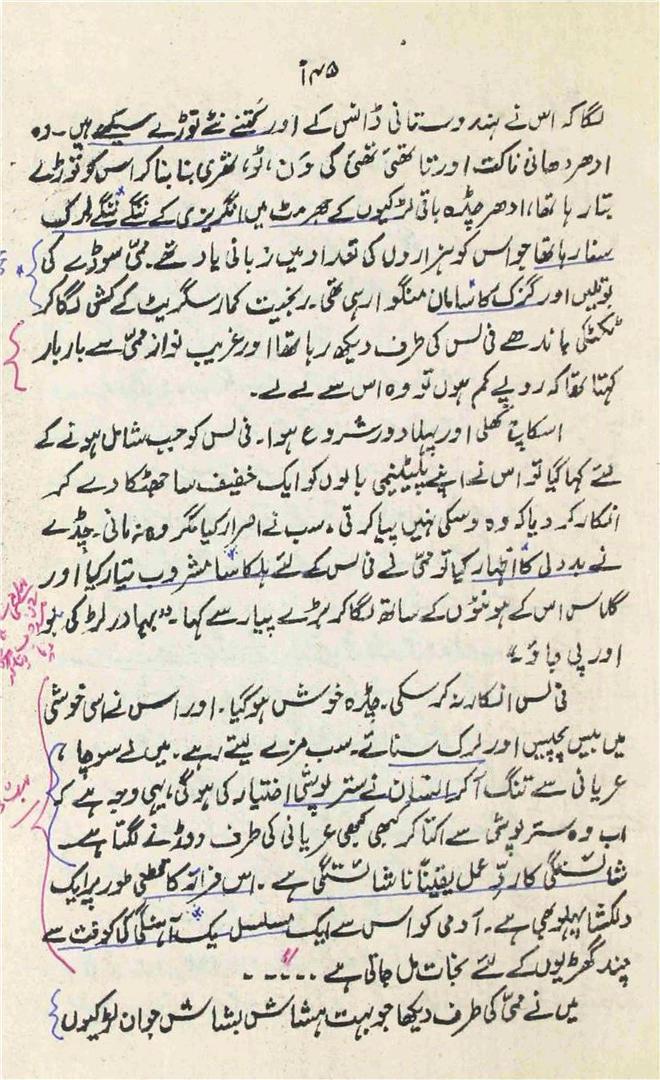 ۱۴۵
لگا کہ اس نے ہندوستانی ڈانس کے اور کتنے نئے توڑے سیکھے ہیں۔ وہ
ادھر دھانی ناکت اور تا تھئی تھئی کی وَن، ٹو، تھری بنا بنا کر اس کو توڑے
بتا رہا تھا، ادھر چڈہ باقی لڑکیوں کے جھرمٹ میں انگریزی کے ننگے ننگے لمرک
سنا رہا تھا جو اس کو ہزاروں کی تعداد میں زبانی یاد تھے۔ ممی سوڈے کی
بوتلیں اور گزک کا سامان منگوا رہی تھی۔ رنجیت کمار سگریٹ کے کش لگا کر
ٹکٹکی باندھے فی لس کی طرف دیکھ رہا تھا اور غریب نواز ممی سے بار بار
کہتا تھا کہ روپے کم ہوں تو وہ اس سے لے لے۔
اسکاچ کھلی اور پہلا دور شروع ہوا۔ فی لس کو جب شامل ہونے کے
لئے کہا گیا تو اس نے اپنے پلیٹینمی بالوں کو ایک خفیف سا جھٹکا دے کر
انکار کر دیا کہ وہ وسکی نہیں پیا کرتی۔ سب نے اصرار کیا مگر وہ نہ مانی۔ چڈے
نے بددلی کا اظہار کیا تو ممی نے فی لس کے لئے ہلکا سا مشروب تیار کیا اور
گلاس اس کے ہونٹوں کے ساتھ لگا کر بڑے پیار سے کہا۔ "بہادر لڑکی بنو
اور پی جاؤ۔"
فی لس انکار نہ کر سکی۔ چڈہ خوش ہو گیا۔ اور اس نے اسی خوشی
میں بیس پچیس اور لمرک سنائے۔ سب مزے لیتے رہے۔ میں نے سوچا،
عریانی سے تنگ آ کر انسان نے ستر پوشی اختیار کی ہو گی، یہی وجہ ہے کہ
اب وہ ستر پوشی سے اکتا کر کبھی کبھی عریانی کی طرف دوڑنے لگتا ہے۔
شائستگی کا ردِّ عمل یقیناً ناشائستگی ہے۔ اس فرار کا قطعی طور پر ایک
دلکشا پہلو بھی ہے۔ آدمی کو اس سے ایک مسلسل یک آہنگی کی کوفت سے
چند گھڑیوں کے لئے نجات مل جاتی ہے -----
میں نے ممی کی طرف دیکھا جو بہت ہشاش بشاش جوان لڑکیوں